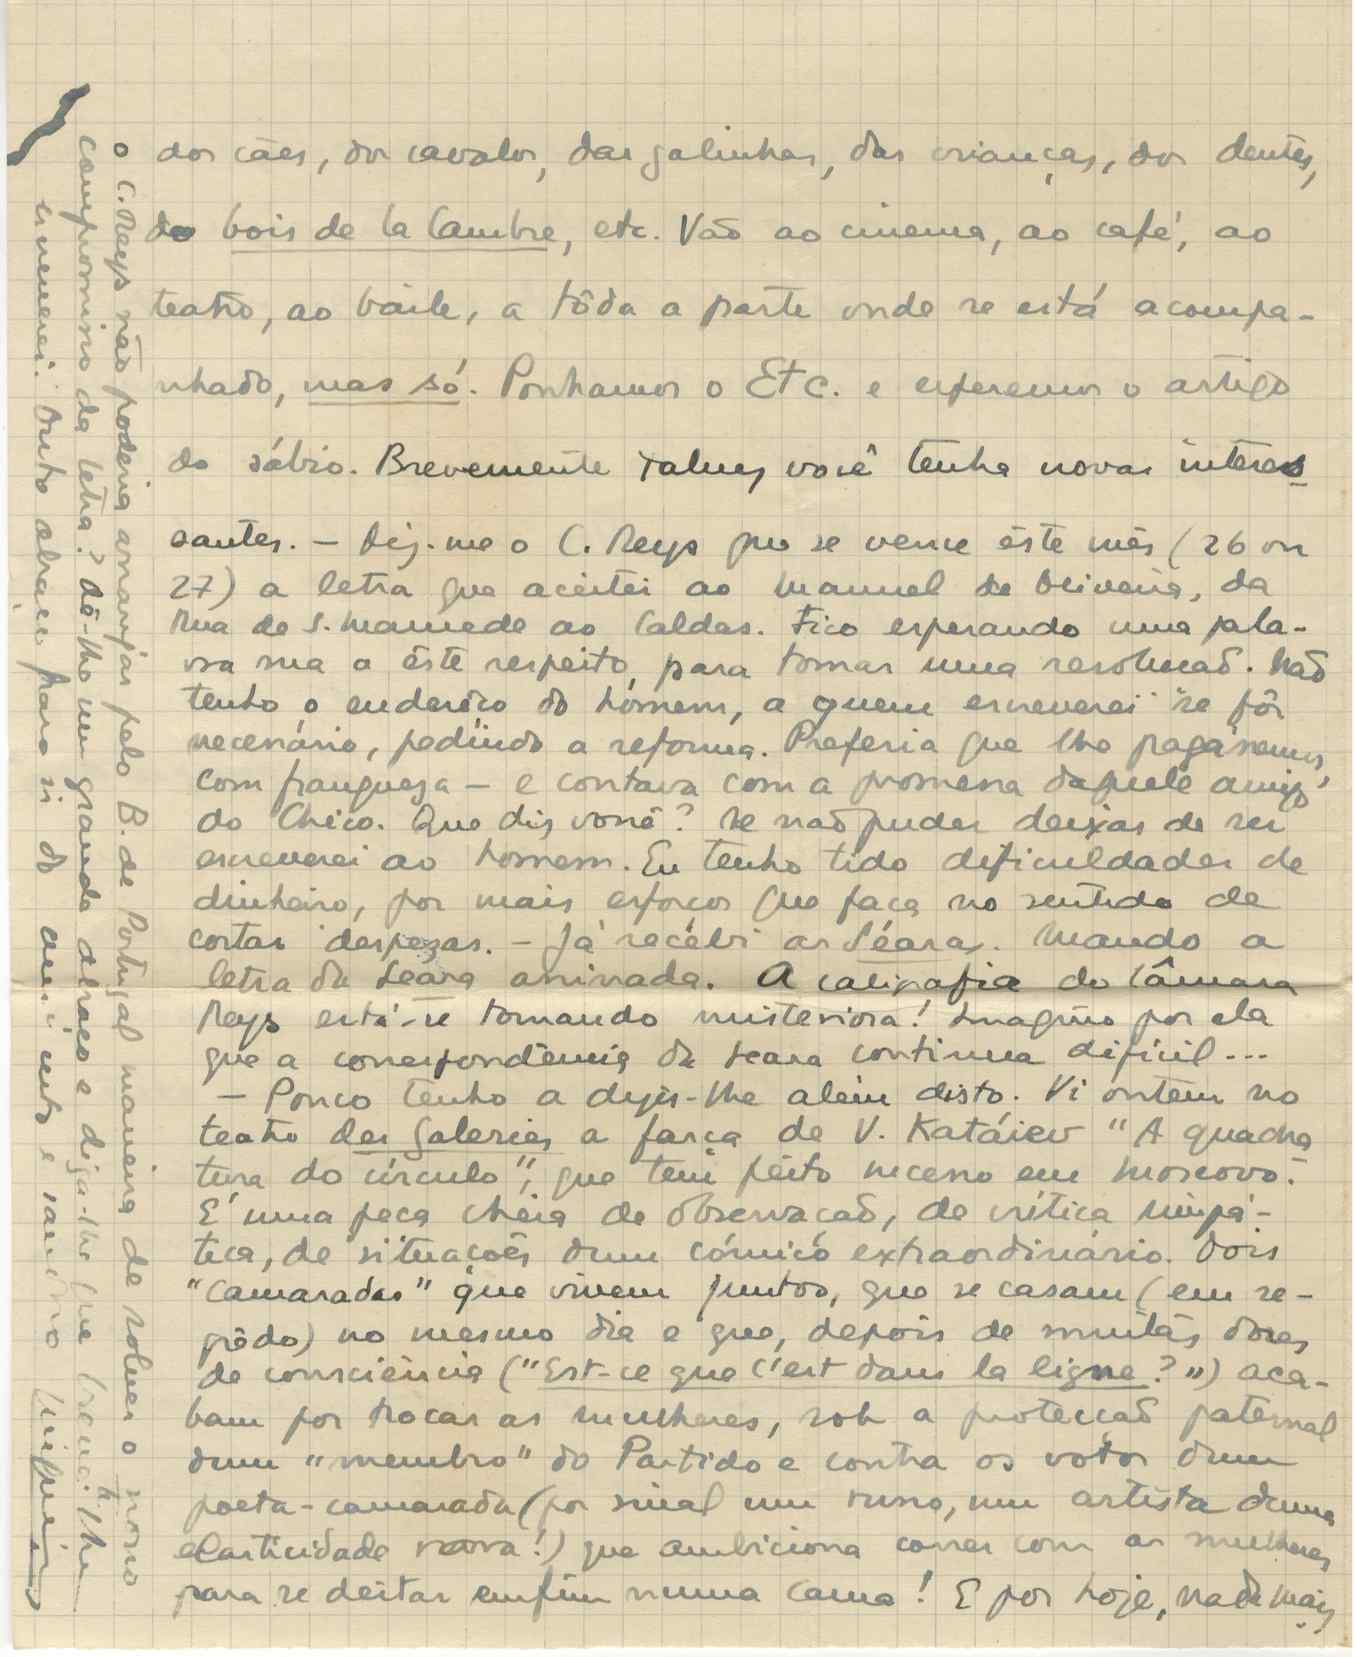 dos cães, dos cavalos, das galinhas, das crianças, dos dentes,
do bois de la Cambre, etc. Vão ao cinema, ao café, ao
teatro, ao baile, a tôda a parte onde se está acompa-
nhado, mas só. Ponhamos o ETC. e esperemos o artigo
do sábio. Brevemente talvez você tenha novas interes
santes. — Diz-me o C. Reys que se vence êste mês (26 ou
27) a letra que aceitei ao Manuel de Oliveira, da
Rua de S. Mamede ao Caldas. Fico esperando uma pala-
vra sua a êste respeito, para tomar uma resolução. Não
tenho o enderêço do homem, a quem escreverei se fôr
necessário, pedindo a reforma. Preferia que lho pagássemos,
com franqueza — e contava com a promessa daquele amigo
do Chico. Que diz você? Se não puder deixar de ser
escreverei ao homem. Eu tenho tido dificuldades de
dinheiro, por mais esforços que faça no sentido de
cortar despezas. — Já recebi as Séaras. Mando a
letra da Seara assinada. A caligrafia do Câmara
Reys está-se tornando misteriosa! Imagino por ela
que a correspondência da Seara continua difícil...
— Pouco tenho a dizer-lhe além disto. Vi ontem no
teatro des Galeries a farça de V. Katáiev "A quadra
tura do círculo", que tem feito sucesso em Moscovo.
É uma peça cheia de observação, de crítica simpá-
tica, de situações dum cómico extraordinário. Dois
"camaradas" que vivem juntos, que se casam (em se-
grêdo) no mesmo dia e que, depois de muitas dores
de consciência ("Est-ce que c'est dans la ligne?") aca-
bam por trocar as mulheres, sob a protecção paternal
dum "membro" do Partido e contra os votos dum
poeta-camarada (por sinal um russo, um artista duma
elasticidade rara!) que ambiciona correr com as mulheres
para se deitar emfim numa cama! E por hoje, nada mais
O C. Reys não poderia arranjar pelo B. de Portugal maneira de solver o nosso
compromisso da letra? Dê-lho um grande abraço e diga-lhe que brevemente lhe
escreverei. Outro abraço para si do amigo muito e